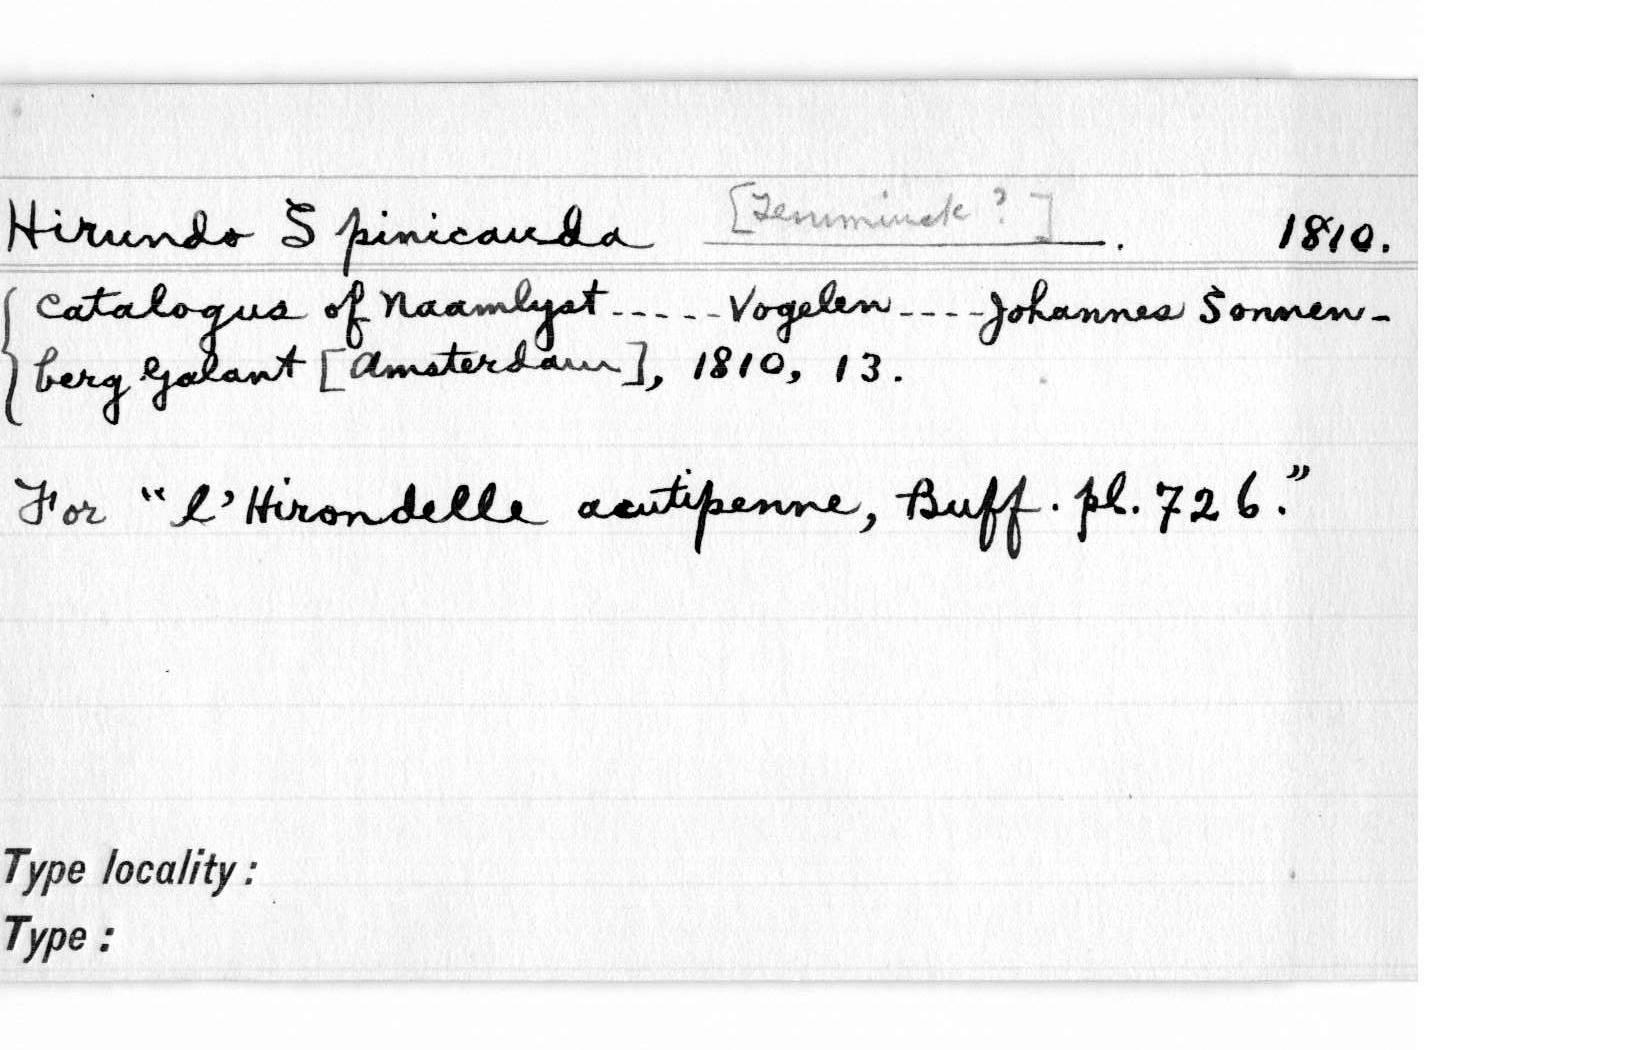 Hirundo Spinicauda [Temminck?]. 1810.
Catalogus of Naamlyst ..... Vogelen .... Johannes Sonnen-
berg Galant [Amsterdam], 1810, 13.
For "l'Hirondelle acutipenne, Buff. pl. 726."
Type locality:
Type: